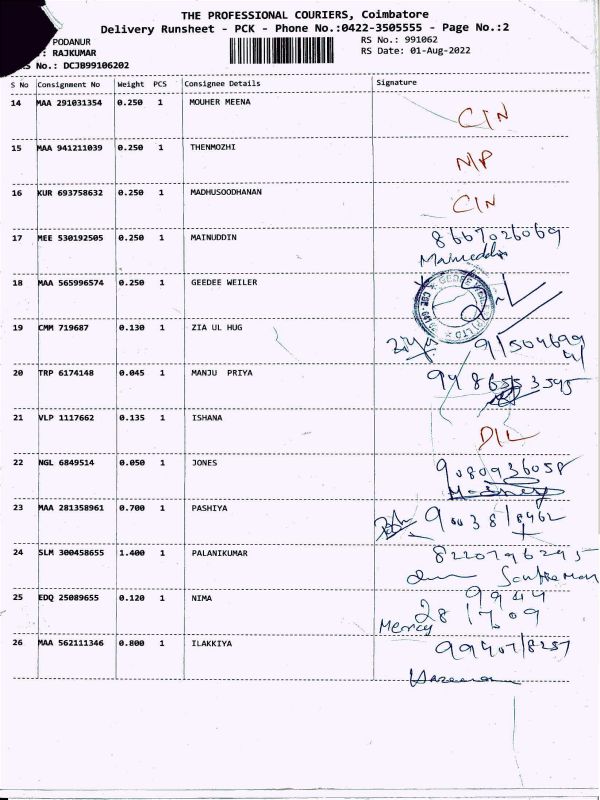 THE PROFESSIONAL COURIERS, Coimbatore
Delivery Runsheet - PCK - Phone No.:0422-3505555 - Page No.:2
PODANUR
: RAJKUMAR
RS No.: DCJB99106202
RS No.: 991062
RS Date: 01-Aug-2022
S No Consignment No Weight PCS Consignee Details Signature
14 MAA 291031354 0.250 1 MOUHER MEENA
CIN
15 MAA 941211039 0.250 1 THENMOZHI
NP
16 KUR 693758632 0.250 1 MADHUSOODHANAN
CIN
17 MEE 530192505 0.250 1 MAINUDDIN 8667026069
Mainuddin
18 MAA 565996574 0.250 1 GEEDEE WEILER
19 CMM 719687 0.130 1 ZIA UL HUG
20 TRP 6174148 0.045 1 MANJU PRIYA
21 VLP 1117662 0.135 1 ISHANA
D/L
22 NGL 6849514 0.050 1 JONES 9080936058
23 MAA 281358961 0.700 1 PASHIYA
24 SLM 300458655 1.400 1 PALANIKUMAR 8220796295
25 EDQ 25089655 0.120 1 NIMA 9944
281709
Mercy
26 MAA 562111346 0.800 1 ILAKKIYA